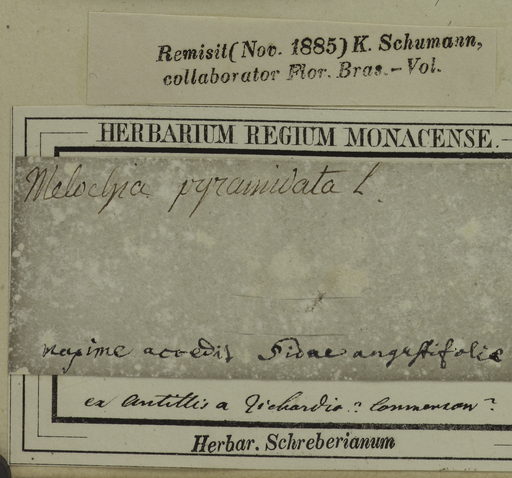 Remisit (Nov. 1885) K. Schumann,
collaborator Flor. Bras.-Vol.
HERBARIUM REGIUM MONACENSE.
Melochia pyramidata L.
maxime accedit Sidae angustifoliae
ex Antillis a Richardio? Commerson?
Herbar. Schreberianum